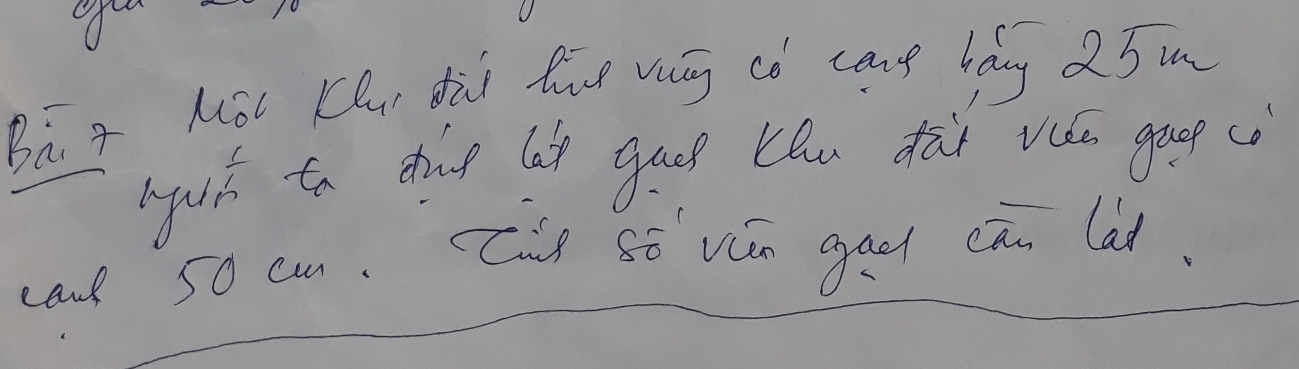 giá 20%
Bài 7 Một khu đất hình vuông có cạnh bằng 25m
người ta định lát gạch khu đất viên gạch có
cạnh 50 cm. Tính số viên gạch cần lát.